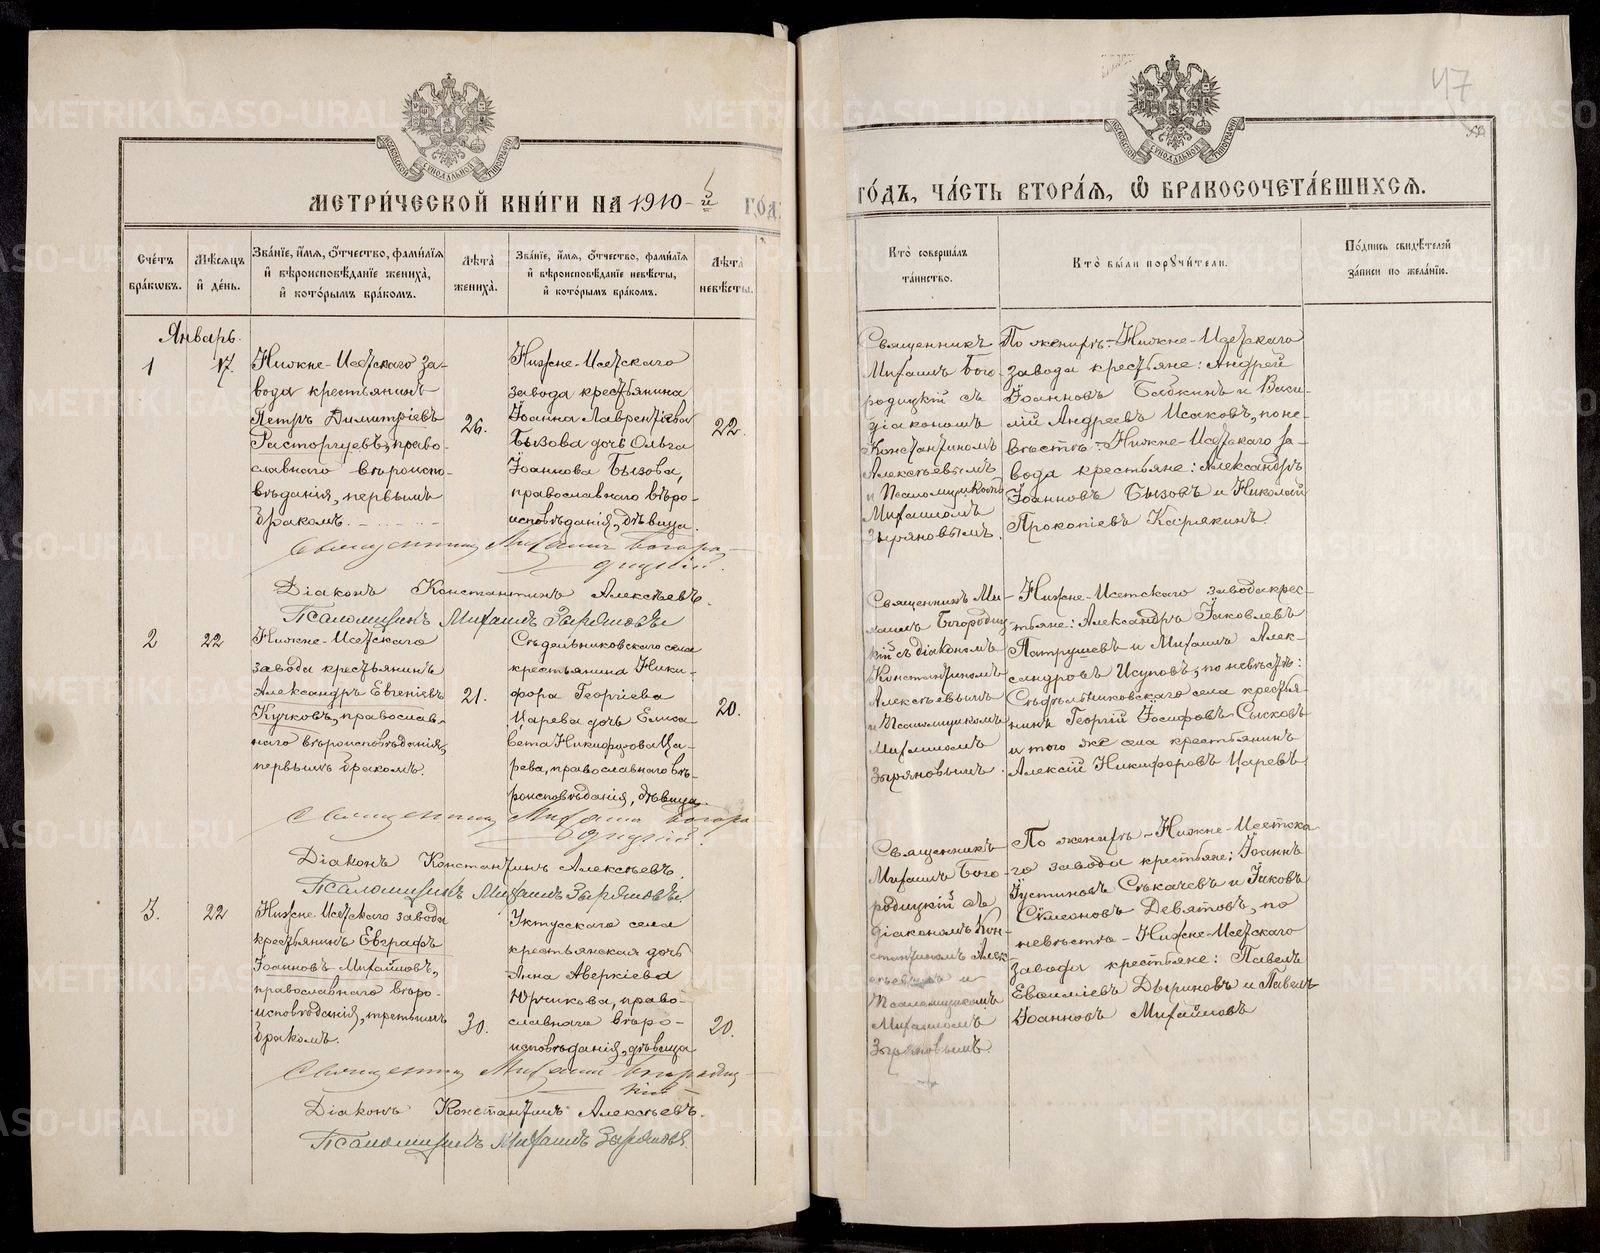 47
МЕТРИ́ЧЕСКОЙ КНИ́ГИ НА 1910-й ГОДЪ, ЧА́СТЬ ВТОРА́Я, Ѿ БРАКОСОЧЕТА́ВШИХСЯ.
Сче́тъ бра́кѡвъ.
Мѣ́сяцъ й де́нь.
Зва́нїе, и́мя, ѻ́тчество, фами́лїя
й вѣроисповѣ́данїе жениха̀,
й кото́рымъ бра́комъ.
Лѣта̀ жениха̀.
Зва́нїе, и́мя, ѻ́тчество, фами́лїя
й вѣроисповѣ́данїе невѣ́сты,
й кото́рымъ бра́комъ.
Лѣта̀ невѣ́сты.
Кто̀ соверша́лъ
та́инство.
Кто̀ бы́ли порꙋчи́тели.
По́дпись свидѣ́телей
за́писи по жела́нїю.
Январь.
1
17.
Нижне-Исетскаго за-
вода крестьянинъ
Петръ Димитріевъ
Расторгуевъ, право-
славнаго вѣроиспо-
вѣданія, первымъ
бракомъ.
26.
Нижне-Исетскаго
завода крестьянина
Іоанна Лаврентіева
Бызова дочь Ольга
Іоаннова Бызова,
православнаго вѣро-
исповѣданія, дѣвица.
22.
Священникъ
Михаилъ Бого-
родицкій съ
діакономъ
Константиномъ
Алексѣевымъ
и Псаломщикомъ
Михаиломъ
Зыряновымъ.
По женихѣ:-Нижне-Исетскаго
завода крестьяне: Андрей
Іоанновъ Бабкинъ и Васи-
лій Андреевъ Исаковъ, по не-
вѣстѣ:-Нижне-Исетскаго за-
вода крестьяне: Александръ
Іоанновъ Бызовъ и Николай
Прокопіевъ Карякинъ.
Священникъ Михаилъ Богоро-
дицкій.
Діаконъ Константинъ Алексѣевъ.
Псаломщикъ Михаилъ Зыряновъ
2
22
Нижне-Исетскаго
завода крестьянинъ
Александръ Евгеніевъ
Кучковъ, православ-
наго вѣроисповѣданія,
первымъ бракомъ.
21.
Сѣдельниковскаго села
крестьянина Ники-
фора Георгіева
Царева дочь Елиса-
вета Никифорова Ца-
рева, православнаго вѣ-
роисповѣданія, дѣвица.
20.
Священникъ Ми-
хаилъ Богородиц-
кій съ діакономъ
Константиномъ
Алексѣевымъ
и Псаломщикомъ
Михаиломъ
Зыряновымъ.
Нижне-Исетскаго завода крес-
тьяне: Александръ Іаковлевъ
Патрушевъ и Михаилъ Алек-
сандровъ Исуповъ, по невѣстѣ:
Сѣдѣльниковскаго села крестья-
нинъ Георгій Іосифовъ Сысковъ
и того же села крестьянинъ
Алексій Никифоровъ Царевъ
Священникъ Михаилъ Богоро-
дицкій.
Діаконъ Константинъ Алексѣевъ.
Псаломщикъ Михаилъ Зыряновъ
3.
22
Нижне-Исетскаго завода
крестьянинъ Евграфъ
Іоанновъ Михайловъ,
православнаго вѣро-
исповѣданія, третьимъ
бракомъ.
30.
Уктусскаго села
крестьянская дочь
Анна Аверкіева
Юрчикова, право-
славнаго вѣро-
исповѣданія, дѣвица
20.
Священникъ
Михаилъ Бого-
родицкій съ
діакономъ Кон-
стантиномъ Алек-
сѣевымъ и
Псаломщикомъ
Михаиломъ
Зыряновымъ.
По женихѣ-Нижне-Исетска-
го завода крестьяне: Іоаннъ
Іустиновъ Сѣкачевъ и Іаковъ
Сѵмеоновъ Девятовъ, по
невѣстѣ-Нижне-Исетскаго
завода крестьяне: Павелъ
Евѳиміевъ Дыриновъ и Павелъ
Іоанновъ Михайловъ
Священникъ Михаилъ Богородиц-
кій
Діаконъ Константинъ Алексѣевъ.
Псаломщикъ Михаилъ Зыряновъ